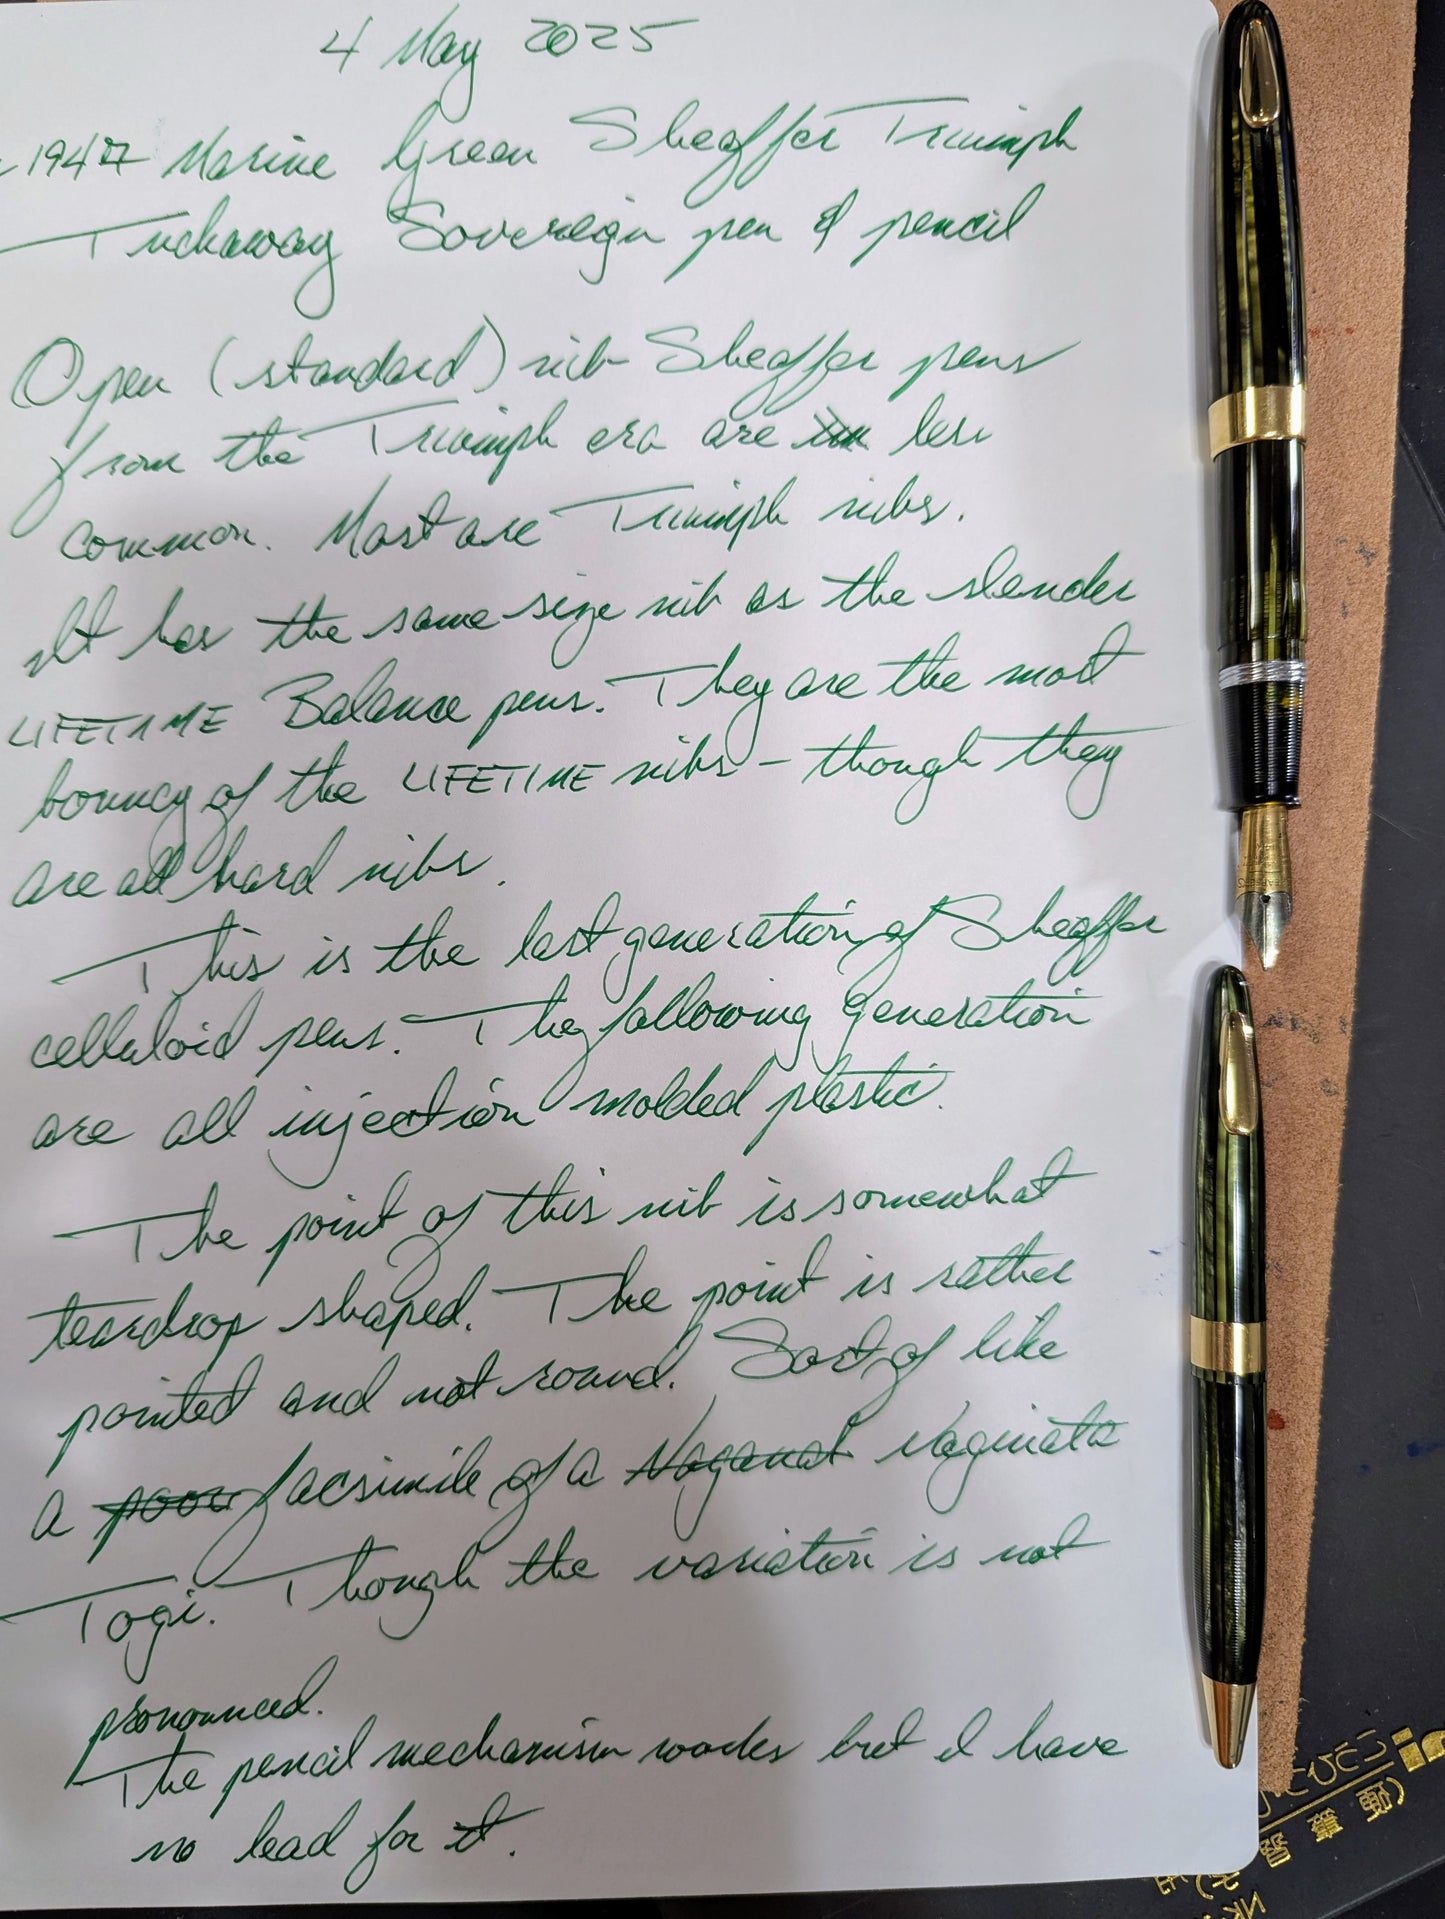 4 May 2025
~1947 Marine Green Sheaffer Triumph
Tuckaway Sovereign pen & pencil
Open (standard) nib Sheaffer pens
from the Triumph era are less
common. Most are Triumph nibs.
It has the same size nib as the slender
LIFETIME Balance pens. They are the most
bouncy of the LIFETIME nibs - though they
are all hard nibs.
This is the last generation of Sheaffer
celluloid pens. The following generation
are all injection molded plastic.
The point of this nib is somewhat
teardrop shaped. The point is rather
pointed and not round. Sort of like
a poor facsimile of a Naganat Naginata
Togi. Though the variation is not
pronounced.
The pencil mechanism works but I have
no lead for it.